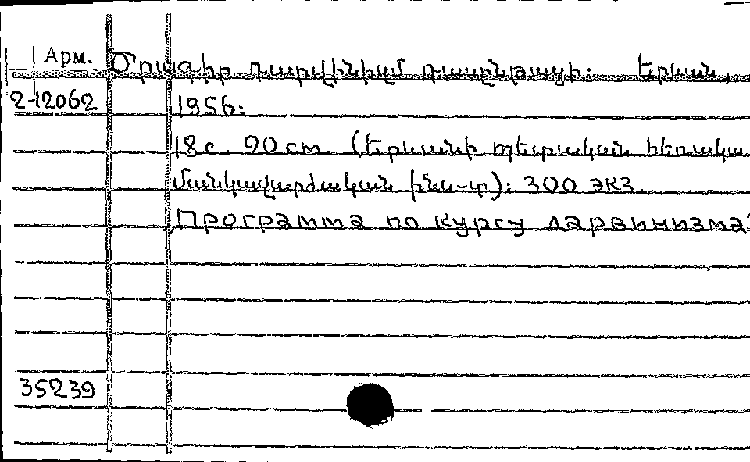 Арм. Ծրագիր դարվինիզմ դասընթացի: Երևան,
2-12062 1956:
18с. 20cm (Երևանի պետական հեռակա
մանկավարժական ինս-տ): 300 экз.
Программа по курсу дарвинизма
35239